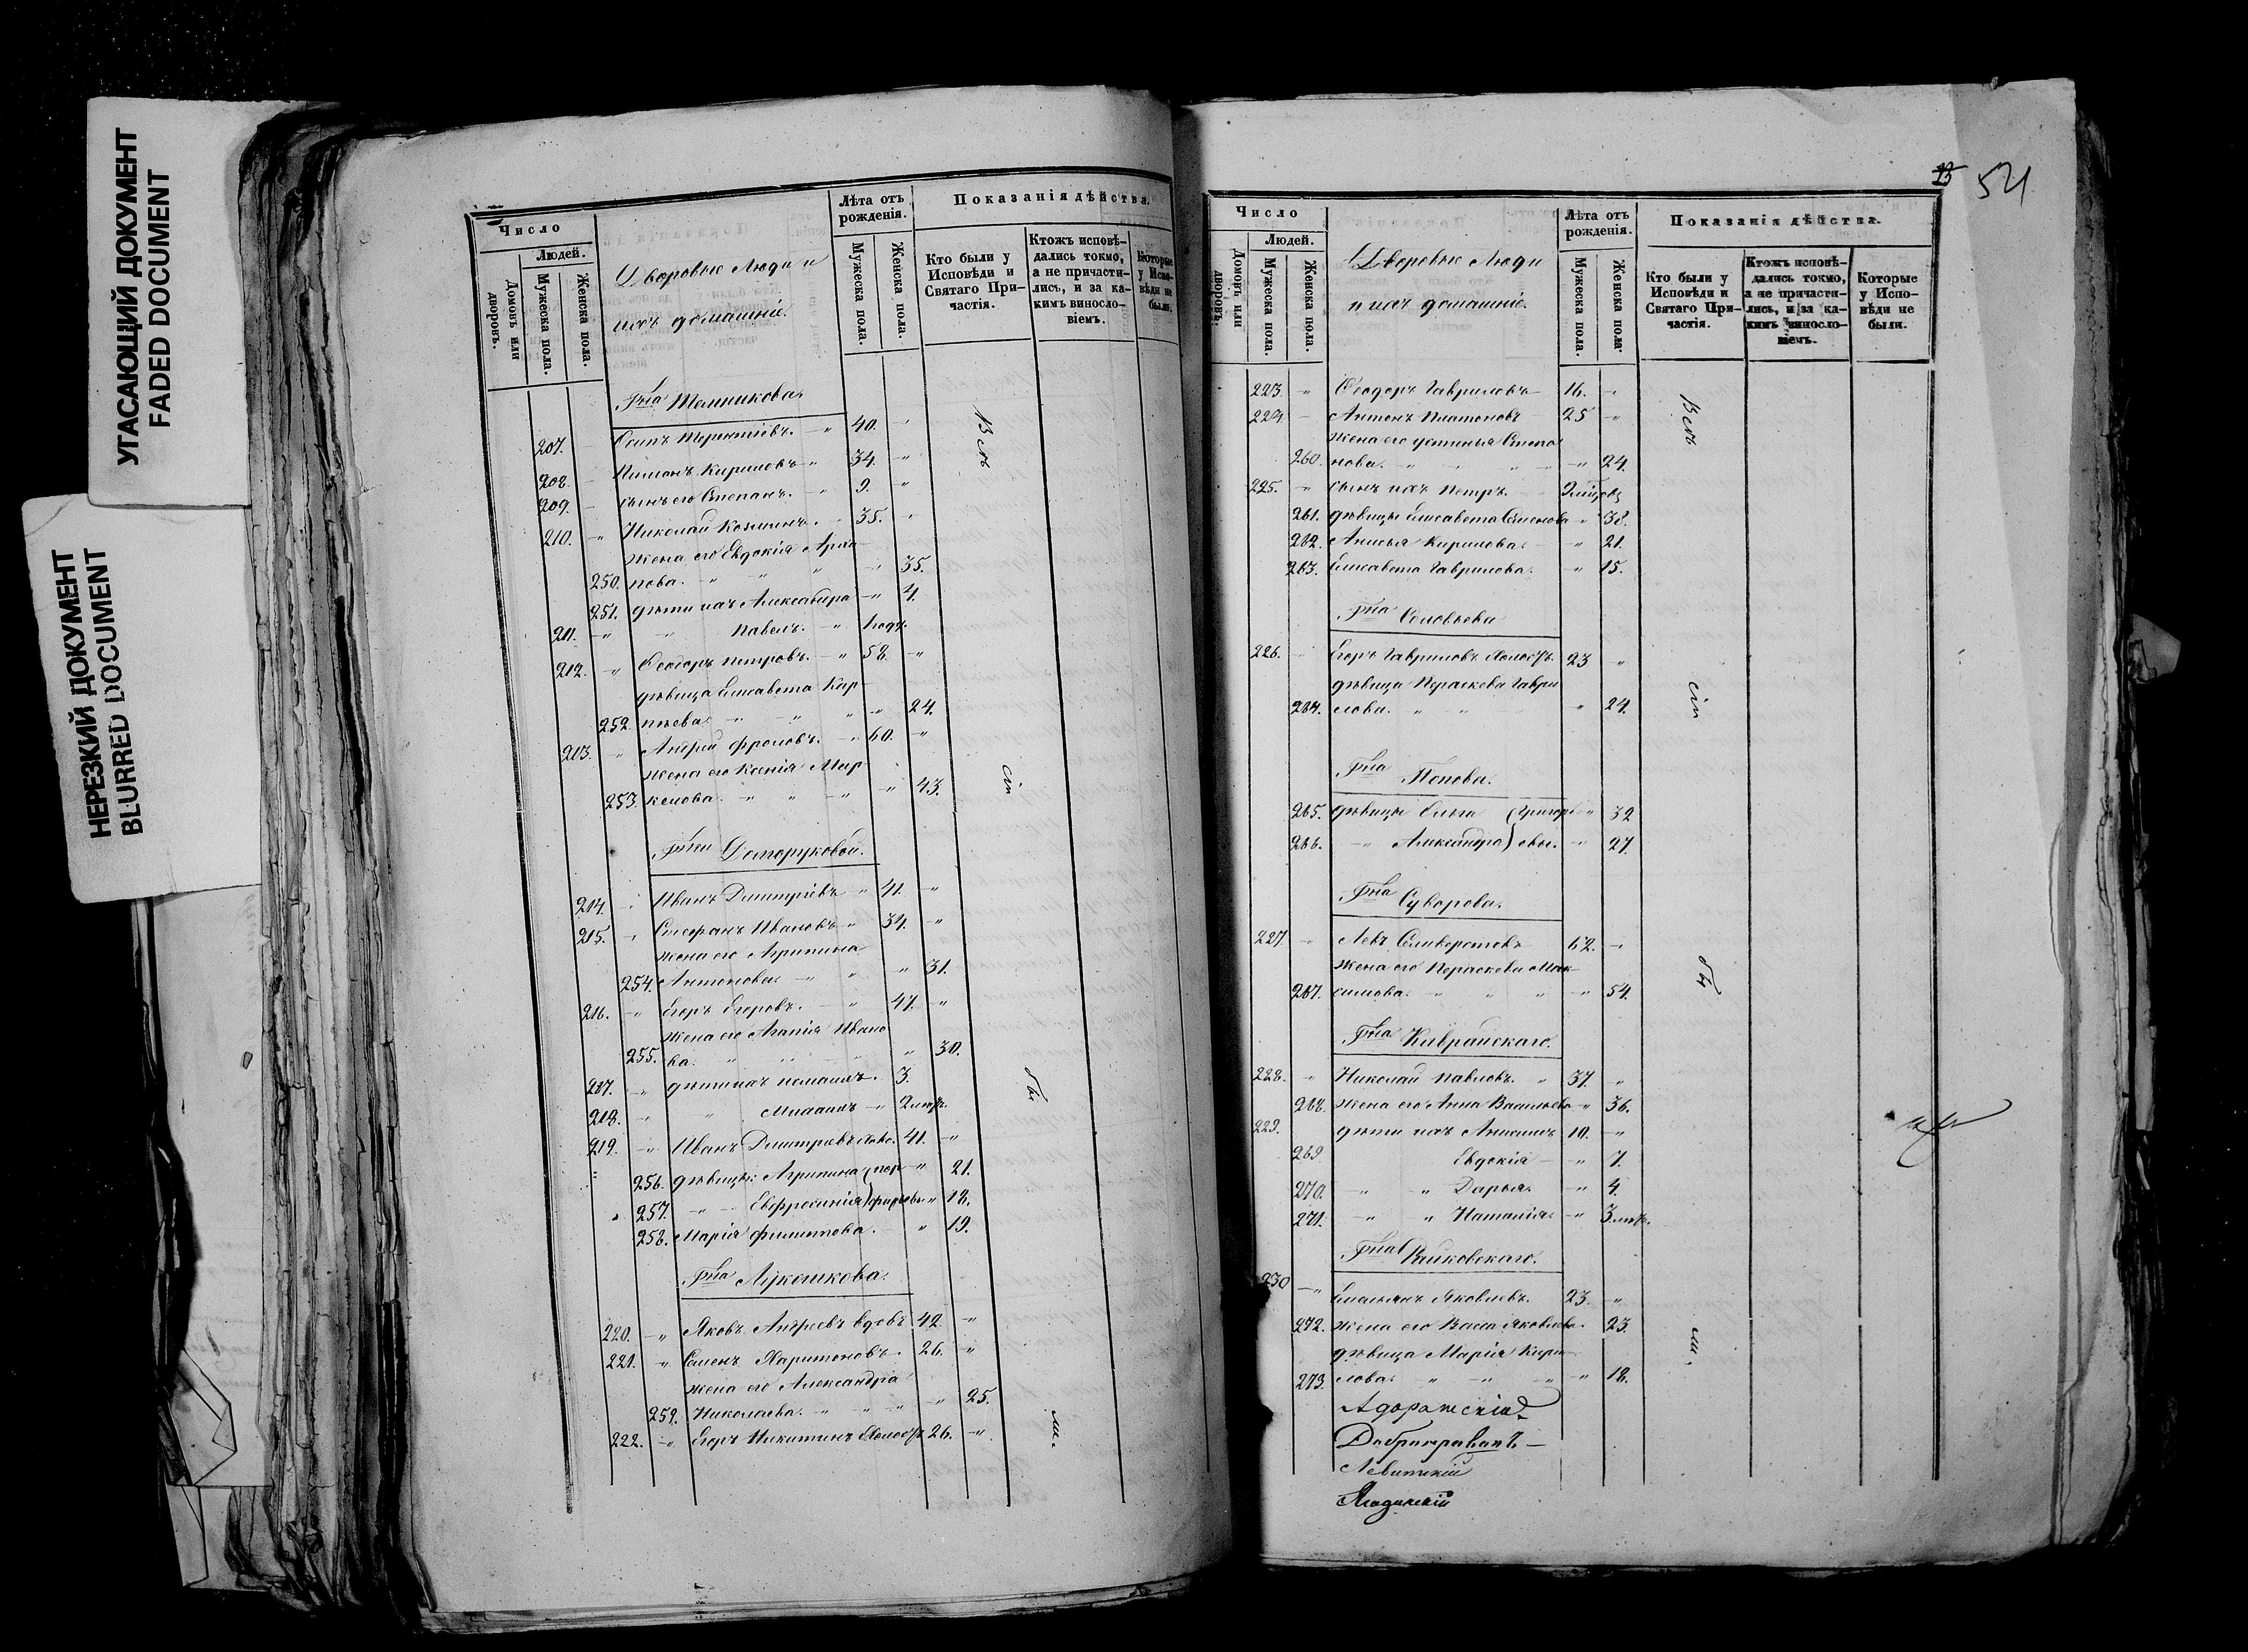 УГАСАЮЩИЙ ДОКУМЕНТ
FADED DOCUMENT
НЕРЕЗКИЙ ДОКУМЕНТ
BLURRED DOCUMENT
Число
Людей.
Домовъ или дворовъ.
Мужеска пола.
Женска пола.
Дворовые Люди и
ихъ домашніе.
Лѣта отъ рожденія.
Мужеска пола.
Женска пола.
Показанія дѣйства.
Кто были у Исповѣди и Святаго Причастія.
Ктожъ исповѣдались токмо, а не причастились, и за какимъ винословіемъ.
Которые у Исповѣди не были.
Гна Темникова.
207. Осипъ Терентіевъ. 40.
208. Пименъ Кириловъ 34.
209. сынъ его Степанъ. 9.
210. Николай Козминъ. 35.
жена его Евдокія
250. пова. 35.
251. дѣти ихъ Александра 4.
211. Павелъ. 1 годъ.
212. Ѳеодоръ Петровъ. 58.
дѣвица Елисавета Кар
252. пѣева. 24.
213. Андрей Фроловъ. 60.
жена его Ксенія Мар
253. келова. 43.
Гжи Долгоруковой.
214. Иванъ Димитріевъ 41.
215. Стефанъ Ивановъ 34.
жена его Агрипина
254. Антонова. 31.
216. Егоръ Егоровъ. 47.
жена его Агапія Ивано
255. ва. 30.
217. дѣти ихъ 3.
218. Михаилъ 2 мѣс.
219. Иванъ Димитріевъ 41.
256. дѣвицы: Агрипина (пор 21.
257. Евфросинія) фирьевы 18.
258. Марія Филиппова. 19.
Гна Лукошкова.
220. Яковъ Андреевъ вдовъ 42.
221. Семенъ Харитоновъ. 26.
жена его Александра
259. Николаева. 25.
222. Егоръ Никитинъ холостъ 26.
Всѣ
сіи
бы
ли.
13 54
Число
Людей.
Домовъ или дворовъ.
Мужеска пола.
Женска пола.
Дворовые Люди
и ихъ домашніе.
Лѣта отъ рожденія.
Мужеска пола.
Женска пола.
Показанія дѣйства.
Кто были у Исповѣди и Святаго Причастія.
Ктожъ исповѣдались токмо, а не причастились, и за какимъ винословіемъ.
Которые у Исповѣди не были.
223. Ѳеодоръ Гавриловъ 16.
224. Антонъ Платоновъ 25
жена его Устинья Степа
260. нова. 24.
225. сынъ ихъ Петръ.
261. дѣвицы Елисавета Семенова 38.
262. Анисья Кирилова. 21.
263. Елисавета Гаврилова. 15.
Гна Соловьева
226. Егоръ Гавриловъ холостъ. 23
дѣвица Параскева Гаври
264. лова. 24.
Гна Попова.
265. дѣвицы Ольга (Григорь 32
266. Александра) евы. 27.
Гна Суворова.
227. Левъ Селиверстовъ 62.
жена его Параскева Мак
267. симова. 54.
Гна Кавравскаго.
228. Николай Павловъ. 37.
268. жена его Анна Васильева 36.
229. дѣти ихъ Анисимъ 10.
269 Евдокія 7.
270. Дарья. 4.
271. Наталія. 3 мѣс.
Гна Райковскаго.
230 Емельянъ Яковлевъ. 23.
272. жена его Васса Яковлева. 23.
дѣвица Марія Кири
273. лова. 18.
Адоратскій
Добронравовъ
Левитскій
Ягодинскій
Всѣ
сіи
бы
ли.